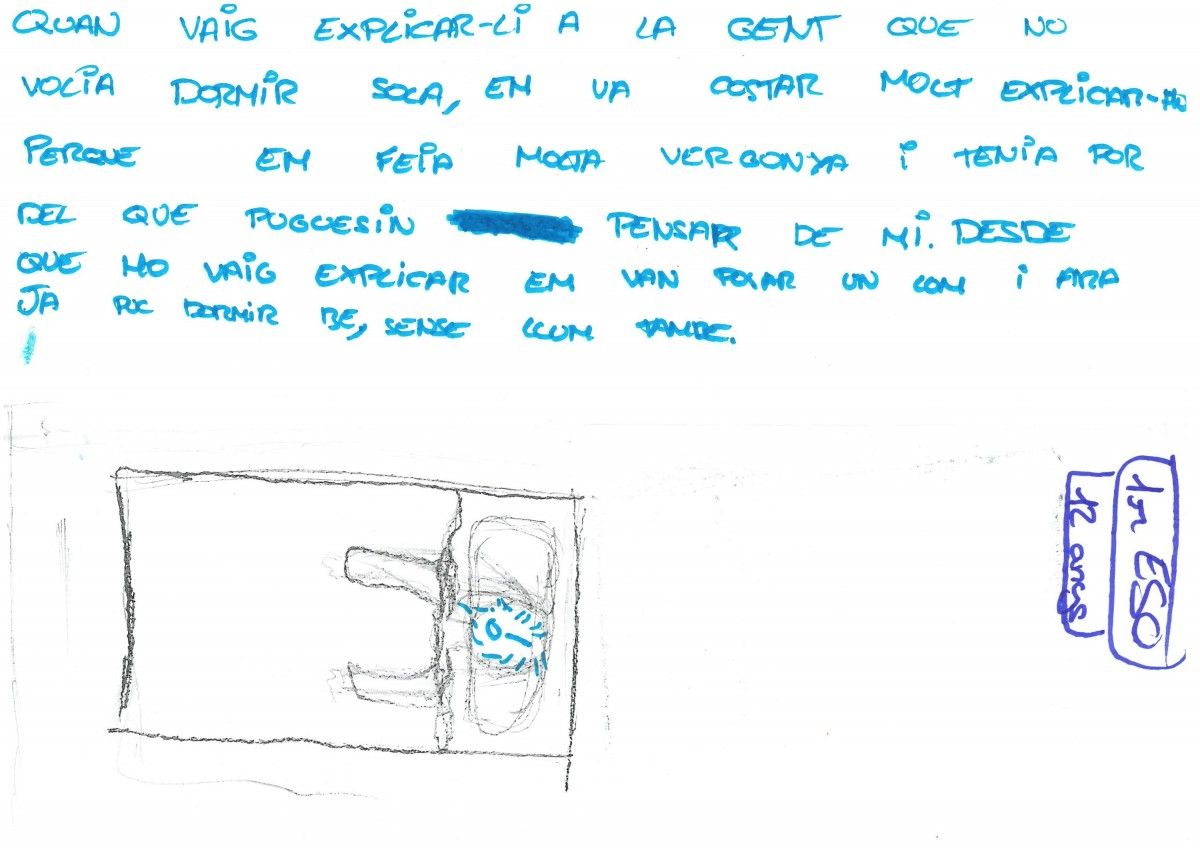 QUAN VAIG EXPLICAR-LI A LA GENT QUE NO
VOLIA DORMIR SOLA, EM VA COSTAR MOLT EXPLICAR-HO
PERQUE EM FEIA MOLTA VERGONYA I TENIA POR
DEL QUE PUGUESIN PENSAR DE MI. DESDE
QUE HO VAIG EXPLICAR EM VAN POSAR UN LOM I ARA
JA PUC DORMIR BE, SENSE LLUM TAMBE.
1r ESO
12 anys